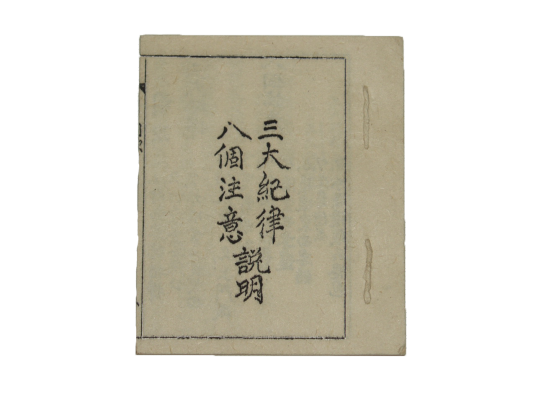 三大紀律
八個注意
説明